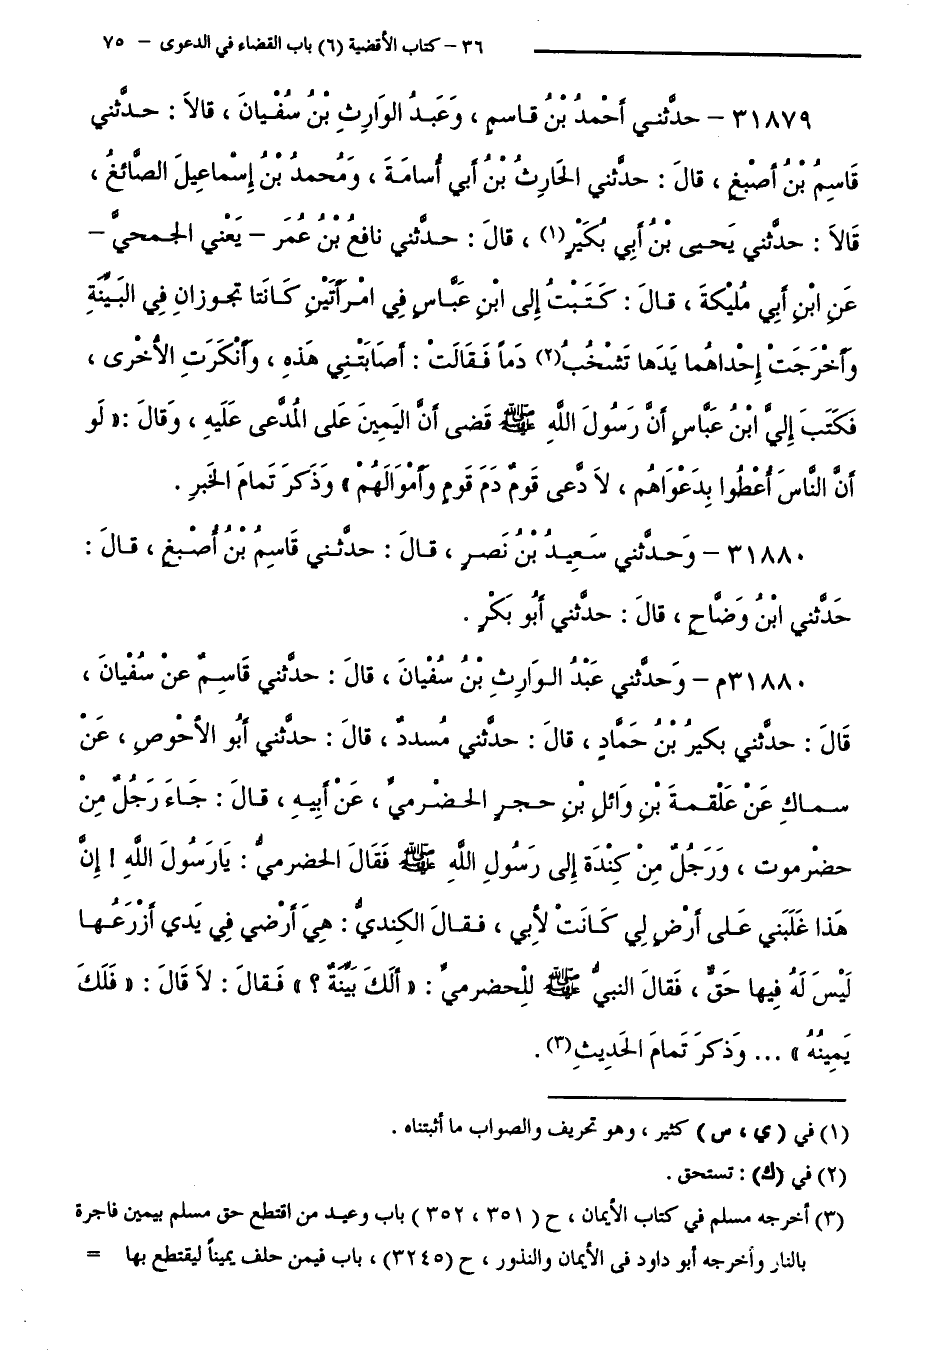 ٣٦ – كتاب الأقضية (٦) باب القضاء في الدعوى – ٧٥
٣١٨٧٩ – حدَّثنـي أَحْمدُ بْنُ قاسمٍ ، وَعَبدُ الوارِثِ بْنُ سُفْيانَ ، قالاَ : حدَّثني
قَاسِمُ بْنُ أصبْغٍ ، قالَ : حدثني الحَارِثُ بْنُ أبي أُسامَةَ ، ومُحمدُ بْن إسْماعيلَ الصَّائغُ ،
قَالاَ : حدثني يَحيى بْنُ أبِي بُكَيْرٍ(١) ، قالَ : حدَّثني نافعُ بْنُ عُمَرَ – يَعْني الجمحيَّ –
عَنِ ابْنِ أبي مُليْكةَ ، قالَ : كَتَبْتُ إلى ابْنِ عبَّاسٍ فِي امْرَأَتَيْنِ كَانَتا تجوزانِ فِي البَيِّنَةِ
وأَخْرَجَتْ إِحْداهُما يَدَها تَشْخُبُ(٢) دَماً فَقالَتْ : أصابَتْنِي هَذهِ ، وأَنْكَرَتِ الأُخْرى ،
فَكَتَبَ إليَّ ابْنُ عبَّاسٍ أنَّ رَسُولَ اللَّهِ ﷺ قَضى أنَّ اليَمِينَ على المُدَّعى عَلَيهِ ، وَقالَ :« لَو
أنَّ النَّاسَ أُعْطُوا بِدَعْوَاهُم ، لاَ دَّعى قَومٌ دَمَ قَومٍ وأَمْوَالَهُمْ » وَذكَرَ تَمامَ الخَبرِ .
٣١٨٨٠ – وَحدثني سَعِيدُ بْنُ نَصرٍ ، قالَ : حدثني قَاسِمُ بْنُ أُصبْغٍ ، قالَ :
حَدَّثني ابْنُ وَضَّاحٍ ، قالَ : حدَّثني أَبُو بَكْرٍ .
٣١٨٨٠م – وَحدَّثني عَبْدُ الوَارِثِ بْنُ سُفْيانَ ، قالَ : حدَّثني قَاسِمٌ عنْ سُفْيانَ ،
قَالَ : حدَّثني بكيرُ بْنُ حَمَّادٍ ، قالَ : حدثني مُسددٌ ، قالَ : حدثني أَبُو الأحْوصِ ، عَنْ
سماكِ عَنْ عَلْقمةَ بْنِ وَائلِ بْنِ حجرٍ الحضْرميِّ ، عَنْ أبِيهِ ، قالَ : جَاءَ رَجُلٌ مِنْ
حضْرموت ، وَرَجُلٌ مِنْ كِنْدَة إلى رَسُولِ اللَّهِ ﷺ فَقَالَ الحضرميُّ : يَارَسُولَ اللَّهِ ! إنَّ
هَذا غَلَبَني عَلى أَرْضٍ لِي كَانَتْ لأبِي ، فقالَ الكِنديُّ : هِيَ أَرْضي فِي يَدي أزْرَعُها
لَيْسَ لَهُ فِيها حَقٌّ ، فَقالَ النبيُّ ﷺ للْحضرميِّ : « أَلَكَ بَيِّنَةٌ ؟ » فَقالَ : لاَ قَالَ : « فَلَكَ
يَمِينُهُ » ... وَذكرَ تَمامَ الحَدِيثِ(٣).
(١) في (ي ، س) كثير ، وهو تحريف والصواب ما أثبتناه .
(٢) في (ك) : تستحق .
(٣) أخرجه مسلم في كتاب الأيمان ، ح ( ٣٥١ ، ٣٥٢ ) باب وعيد من اقتطع حق مسلم بيمين فاجرة
بالنار وأخرجه أبو داود فى الأيمان والنذور ، ح (٣٢٤٥) ، باب فيمن حلف يميناً ليقتطع بها =